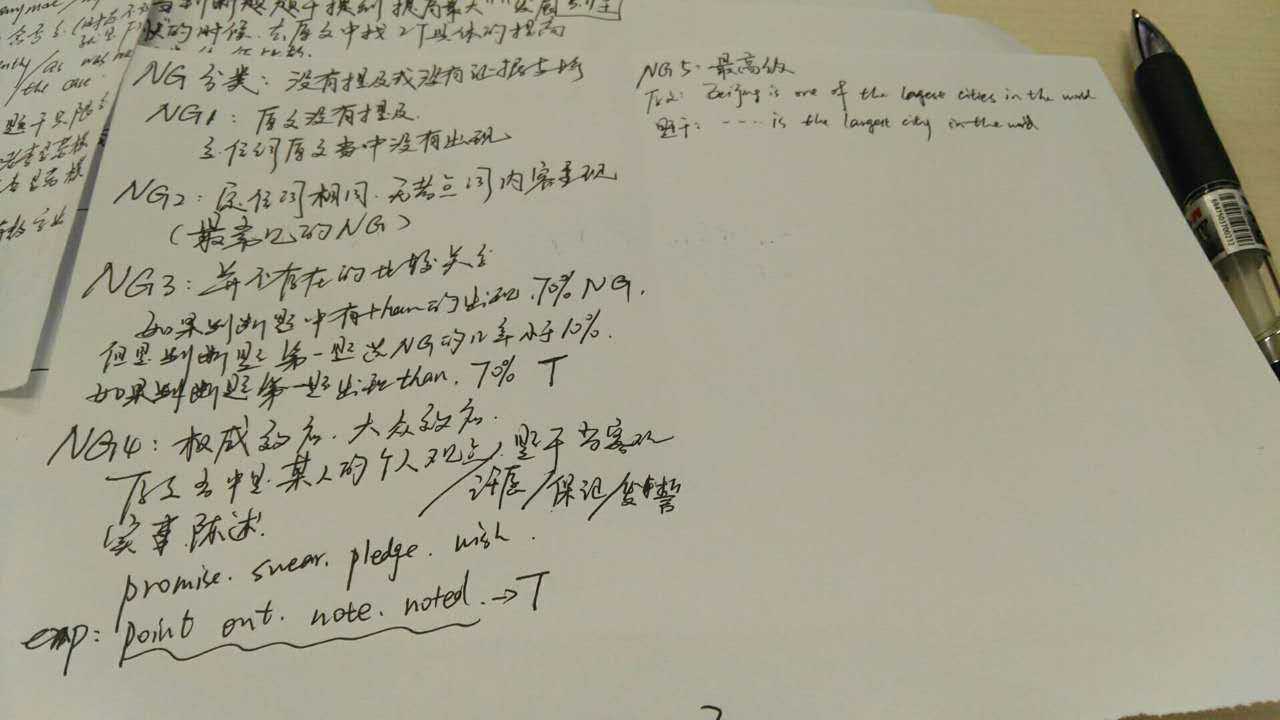 的时候,去原文中找2个具体的提高
NG分类:没有提及或没有证据支撑
NG1:原文没有提及.
定位词原文当中没有出现
NG2:定位词相同.无考点词内容呈现
(最常见的NG)
NG3:并不存在的比较关系
如果判断题中有than的出现.70% NG.
但是判断题第一题选NG的几率小于10%.
如果判断题第一题出现than.70% T
NG4:权威效应.大众效应.
原文当中是某人的个人观点/许愿/保证/发誓
题干当客观
实事陈述.
promise.swear.pledge.wish.
exp:point out.note.noted.→T
NG5:最高级
原文:Beijing is one of the largest cities in the world
题干:----is the largest city in the world
the case
题干只限